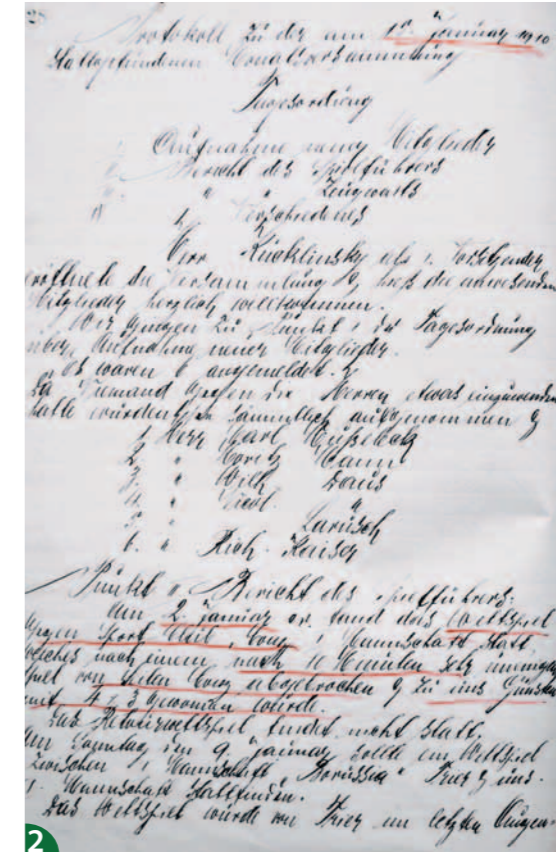 28
Protokoll zu der am 15. Januar 1910
stattgefundenen Monatsversammlung
Tagesordnung
1. Aufnahme neuer Mitglieder
Bericht des Spielführers
" " Zeugwarts
4. Verschiedenes
Herr Kücklinsky als 1. Vorsitzender
eröffnete die Versammlung & hieß die anwesenden
Mitglieder herzlich willkommen.
Wir gingen zu Punkt 1 der Tagesordnung
über, Aufnahme neuer Mitglieder.
Es waren 6 angemeldet.
Da Niemand gegen die Herren etwas einzuwenden
hatte wurden sämmtlich aufgenommen &
1. Herr Karl
2. " Moritz Mann
3. " Wilh. Daus
4. " "
5. " Larüsch
6. " Rich. Kaiser
Punkt 2. Bericht des Spielführers.
Am 2. Januar cr. fand das Wettspiel
gegen Sport 1. Mannschaft statt,
welches nach einem nach 10 Minuten
Spiel von Seiten abgebrochen & zu uns Gunsten
mit 4:3 gewonnen wurde.
Das Retourwettspiel findet nicht statt.
Am Sonntag den 9. Januar sollte ein Wettspiel
zwischen 1. Mannschaft "Borussia" Trier & uns.
1. Mannschaft stattfinden.
Das Wettspiel wurde von Trier im letzten Augen-
2